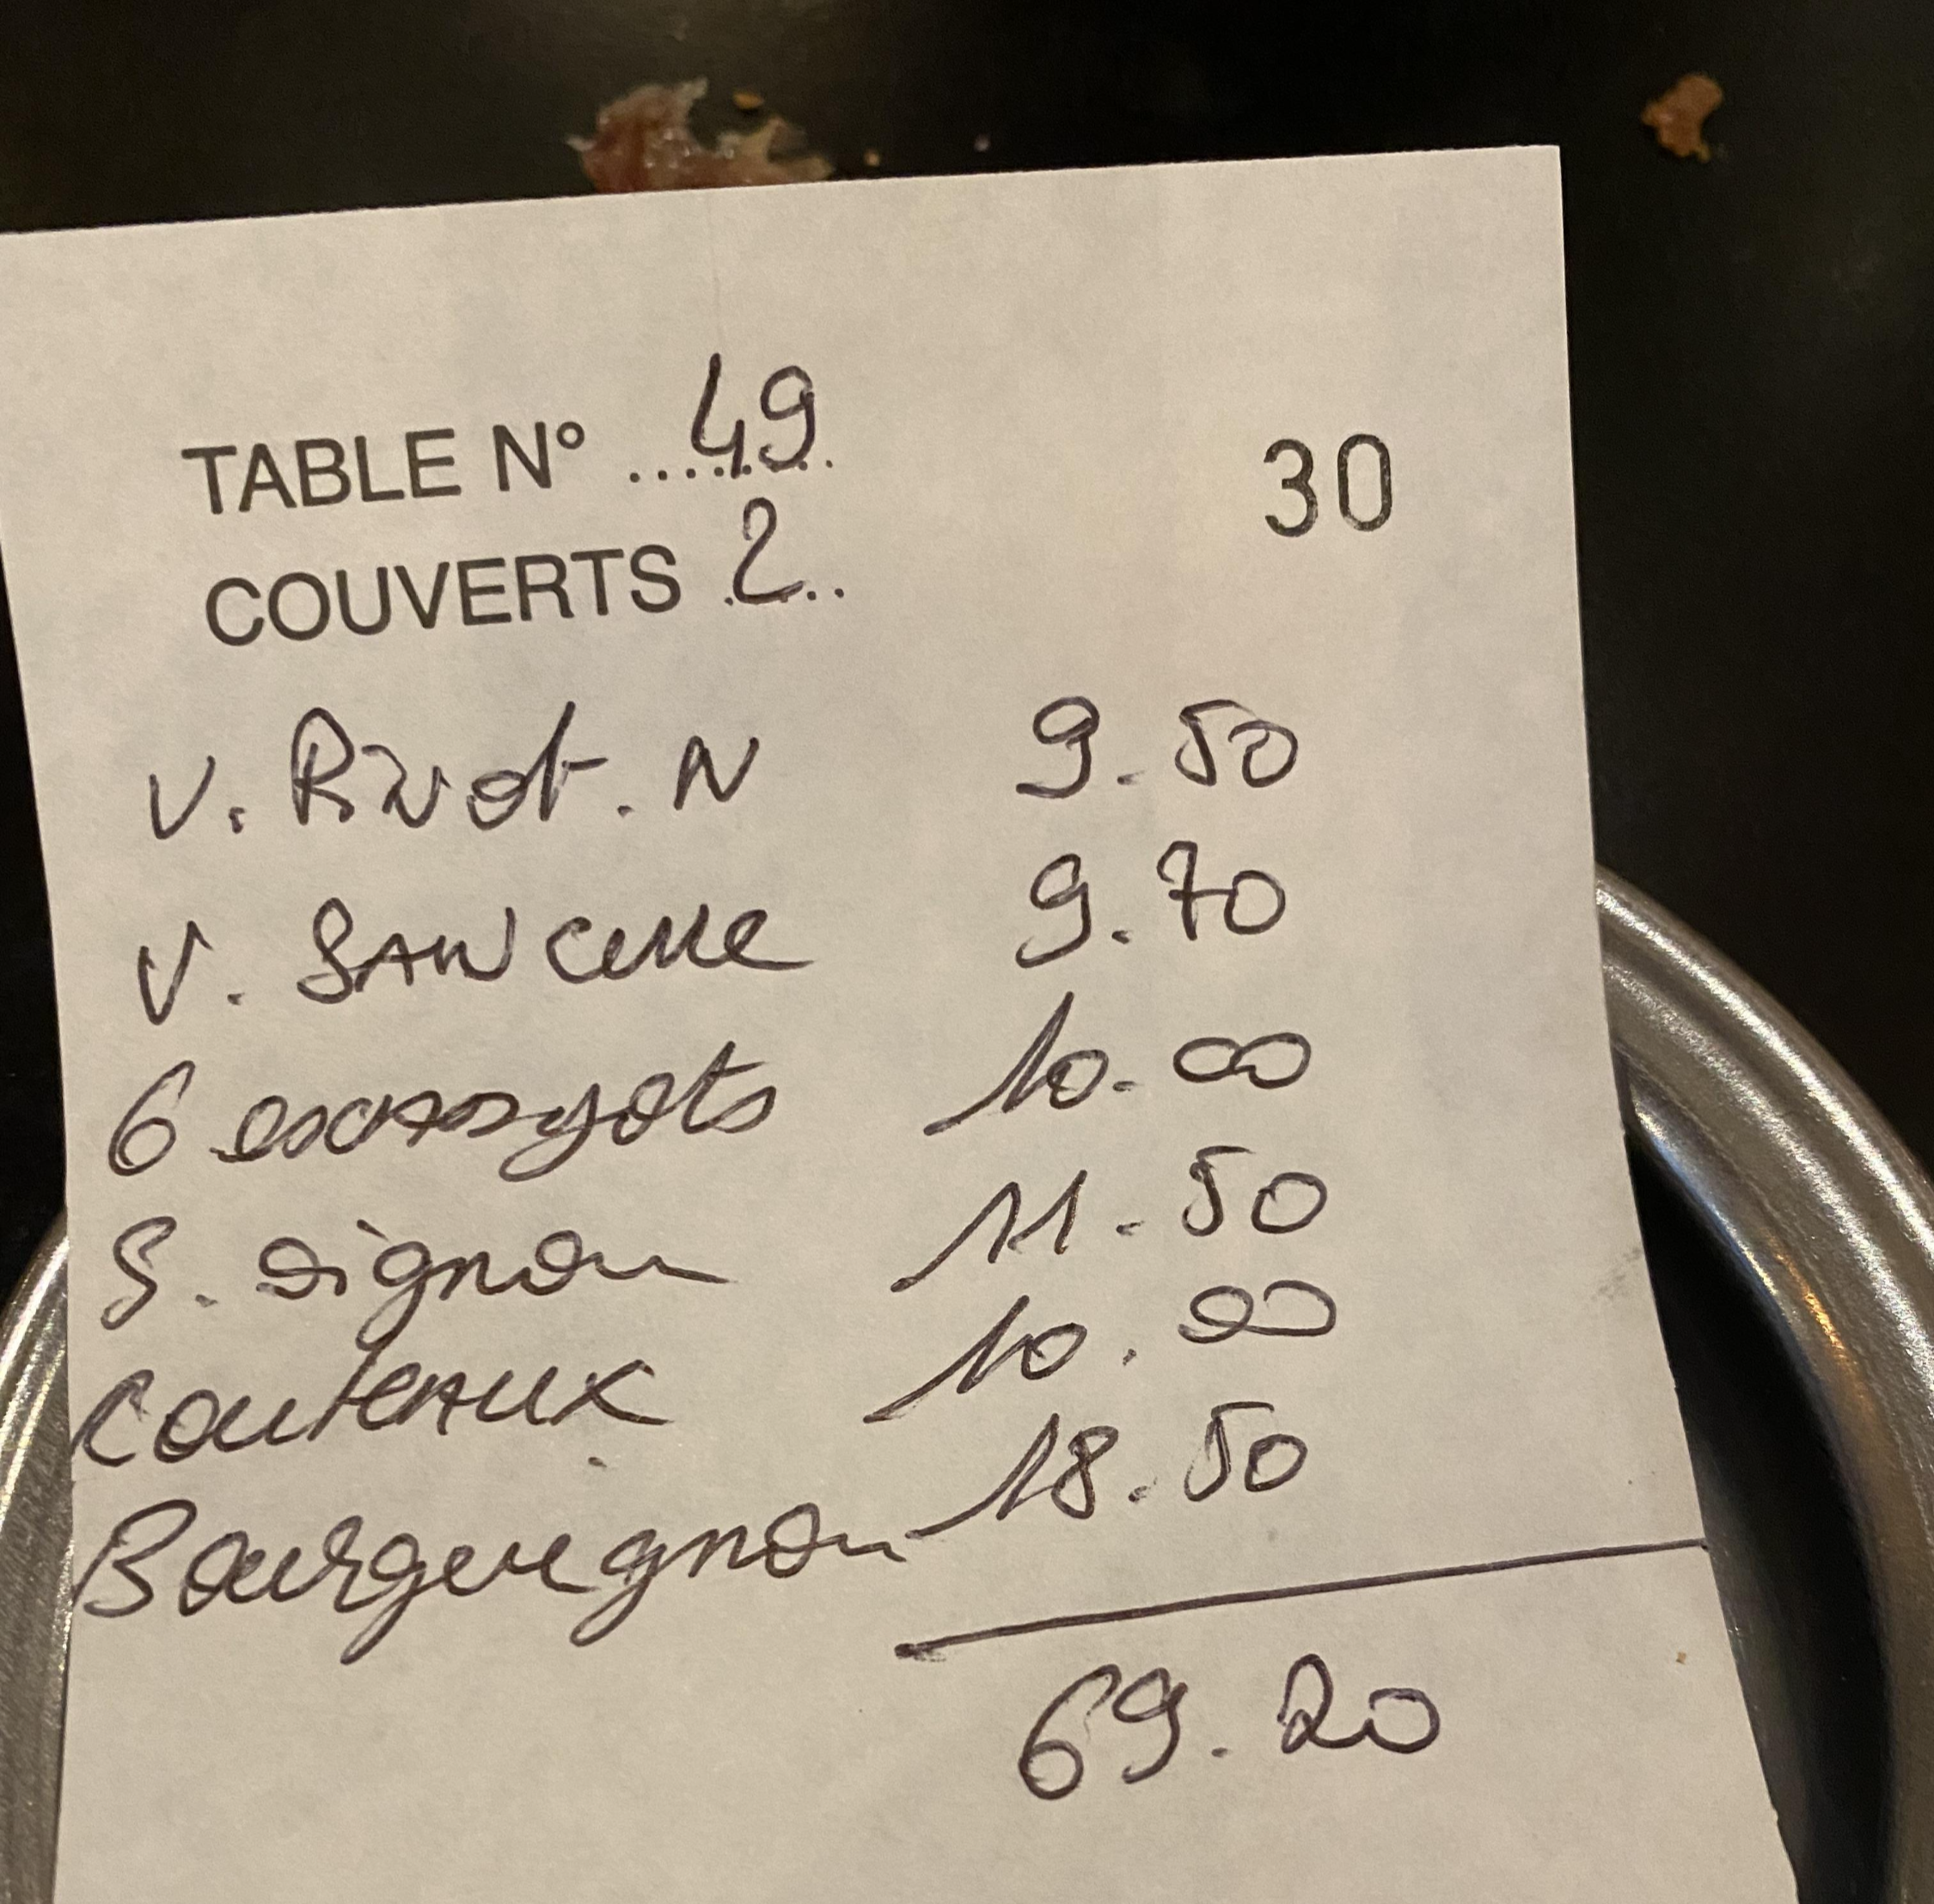 TABLE N° 49
30
COUVERTS 2
V. Pivot. N 9.50
V. SANCerre 9.70
6 escargots 10.00
S. oignon 11.50
couteaux 10.00
Bourguignon 18.50
69.20